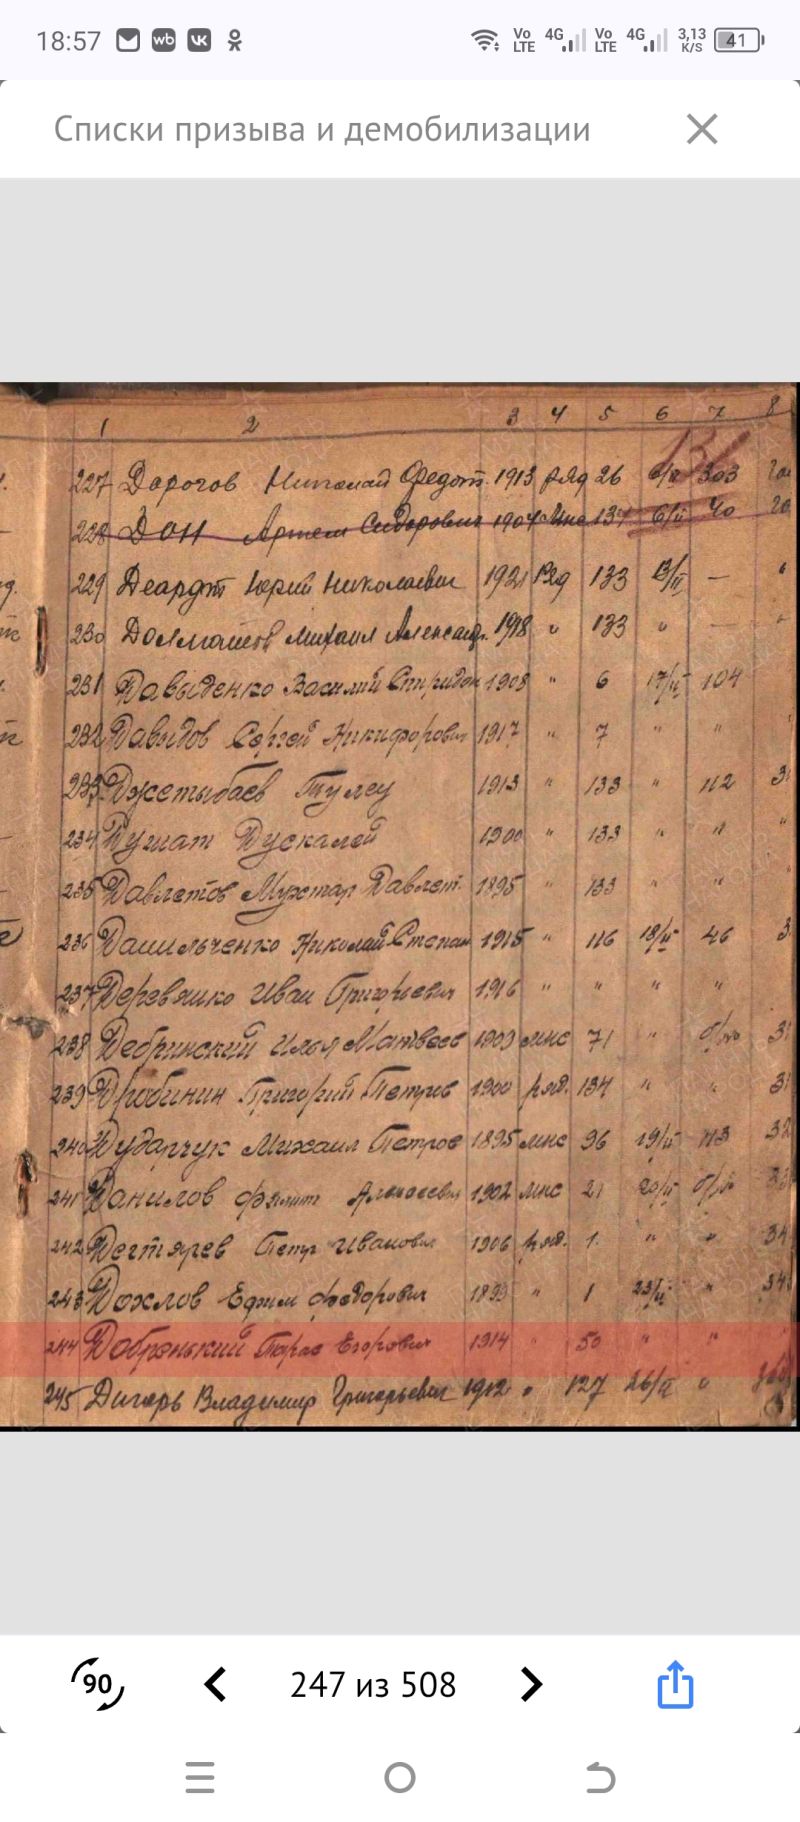 18:57 wb VK Vo LTE 4G Vo LTE 4G 3,13 K/S 41
Списки призыва и демобилизации
1 2 3 4 5 6 7 8
131
227 Дорогов Николай Федот. 1913 ряд 26 6/II 303
228 Дон Артем Сидорович 1904 мнс 137 6/II 40
229 Деардт Юрий Николаевич 1921 Ряд 133 13/II —
230 Михаил Александр. 1918 " 133 " —
231 Давыденко Василий Спиридон 1908 " 6 17/II 104
232 Давыдов Сергей Никифорович 1917 " 7 " "
233 Джетыбаев Тулеу 1913 " 133 " 112
234 Душат Дускалей 1900 " 133 " "
235 Давлетов Мухтар Давлет. 1895 " 133 " "
236 Данильченко Николай Степан 1915 " 116 18/II 46
237 Деревяшко Иван Григорьевич 1916 " " " "
238 Дебринский Илья Матвеев 1903 мнс 71 "
239 Дробинин Григорий Петров 1900 ряд. 134 " "
240 Дударчук Михаил Петров 1895 мнс 96 19/II 113 32
241 Данилов Алексеевич 1902 мнс 21 20/II
242 Дегтярев Петр Иванович 1906 ряд. 1 " " 34
243 Дохлов Ефим Федорович 1899 " 1 23/II " 34
244 Добренький Тарас Егорович 1914 " 50 " "
245 Дигорь Владимир Григорьевич 1912 " 127 26/II "
90 247 из 508